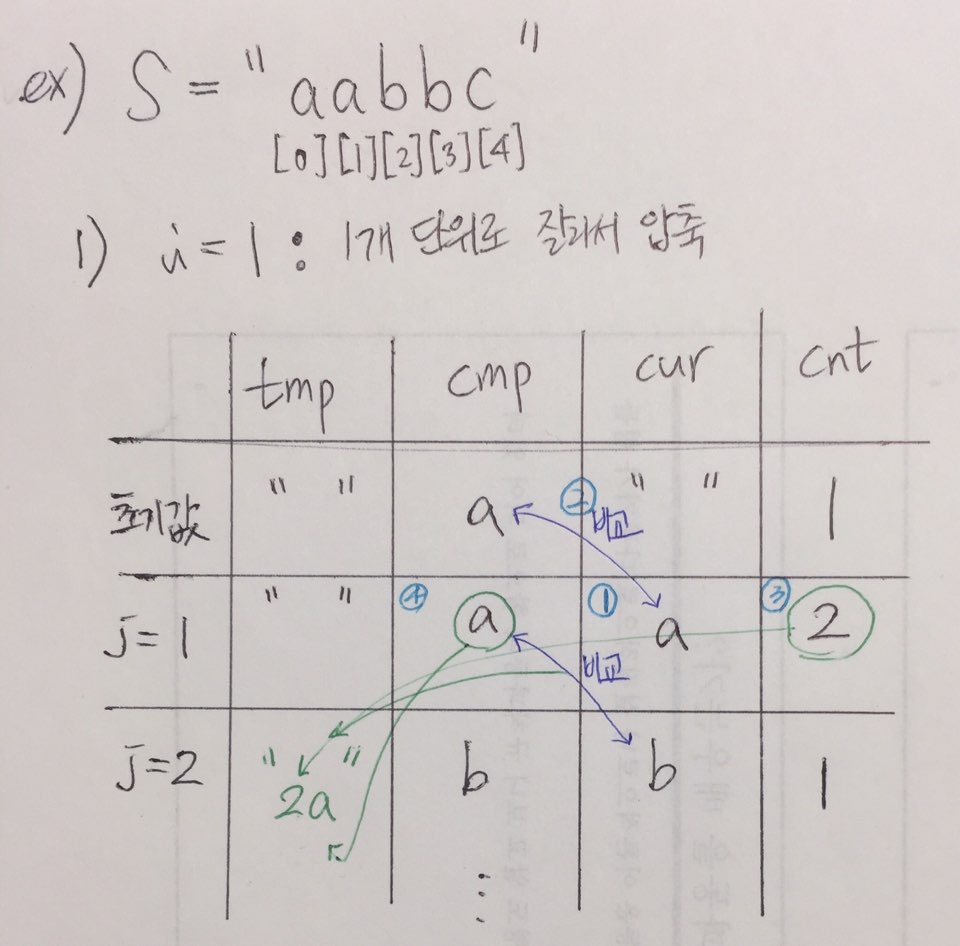 ex) S = "aabbc"
[0][1][2][3][4]
1) i = 1 : 1개 단위로 잘라서 압축
tmp cmp cur cnt
초기값 " " a ② 비교 " " 1
j=1 " " ④ a ① a ③ 2
비교
j=2 "2a" b b 1
⋮